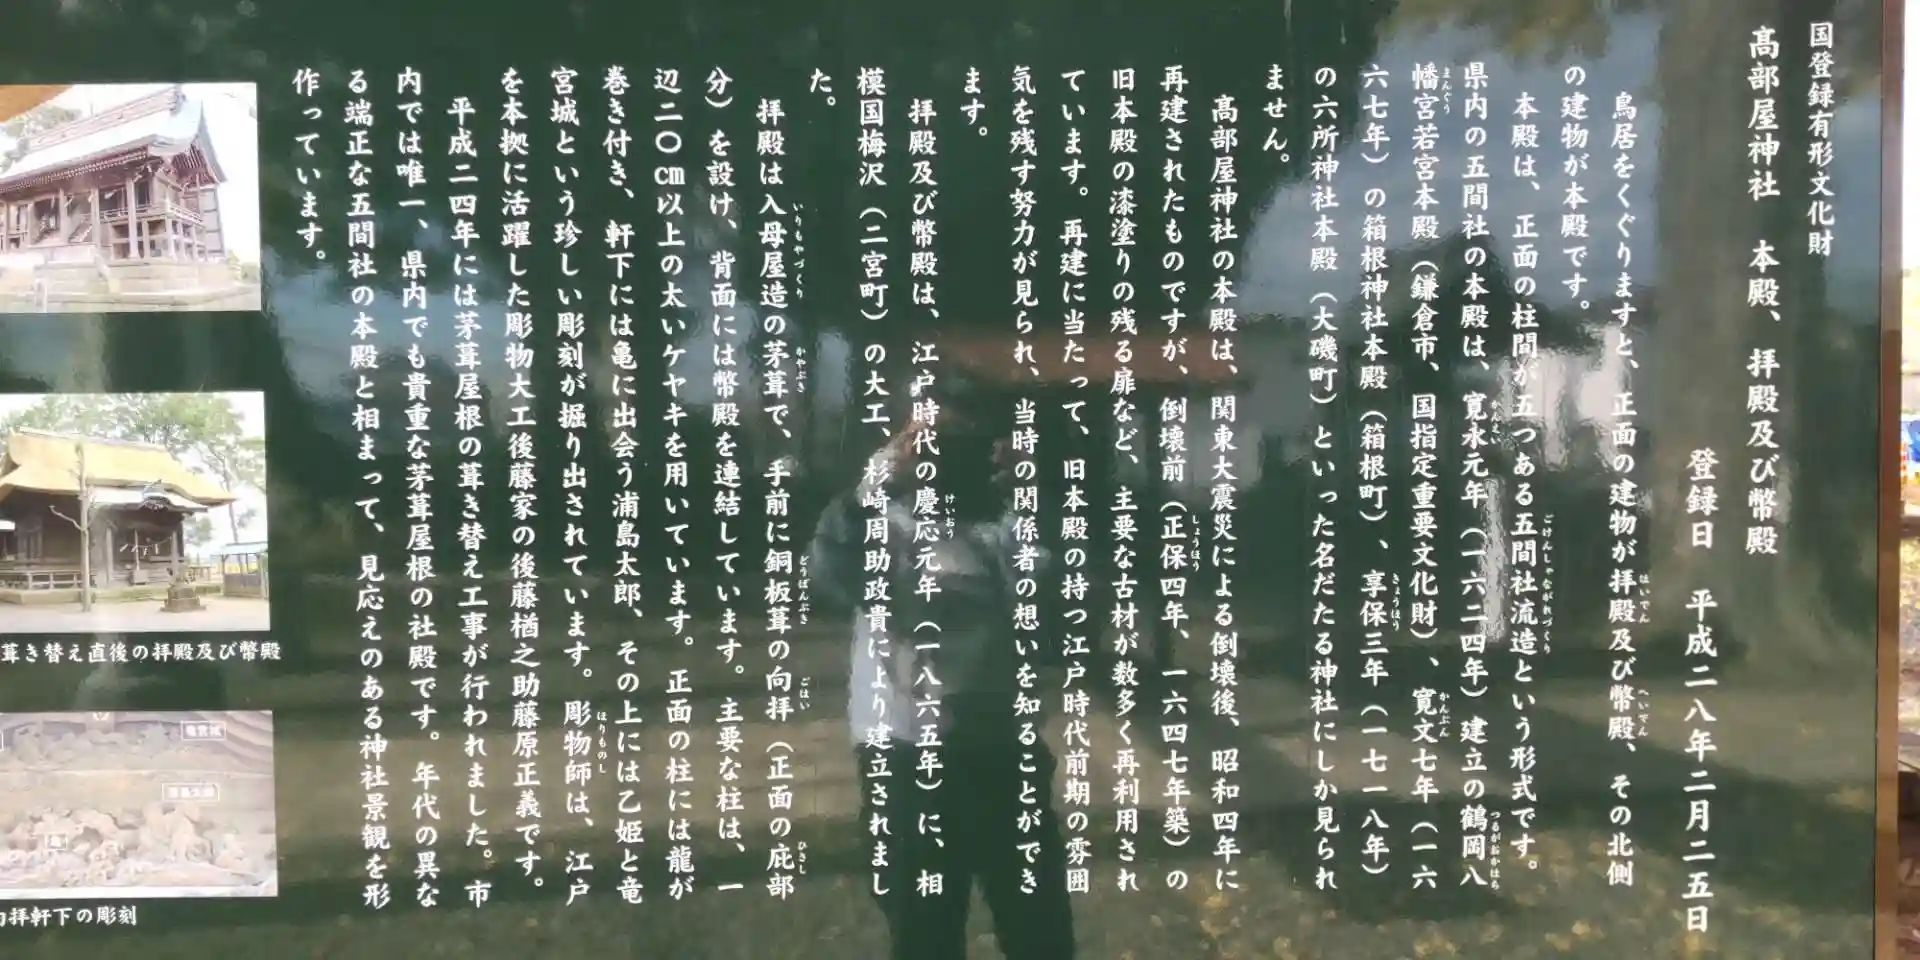 国登録有形文化財
髙部屋神社　本殿、拝殿及び幣殿
登録日　平成二八年二月二五日
鳥居をくぐりますと、正面の建物が拝殿及び幣殿、その北側
はいでん
へいでん
の建物が本殿です。
本殿は、正面の柱間が五つある五間社流造という形式です。
ごけんしゃながれづくり
県内の五間社の本殿は、寛永元年（一六二四年）建立の鶴岡八
かんえい
つるがおかはち
幡宮若宮本殿（鎌倉市、国指定重要文化財）、寛文七年（一六
まんぐう
かんぶん
六七年）の箱根神社本殿（箱根町）、享保三年（一七一八年）
きょうほう
の六所神社本殿（大磯町）といった名だたる神社にしか見られ
ません。
髙部屋神社の本殿は、関東大震災による倒壊後、昭和四年に
再建されたものですが、倒壊前（正保四年、一六四七年築）の
しょうほう
旧本殿の漆塗りの残る扉など、主要な古材が数多く再利用され
ています。再建に当たって、旧本殿の持つ江戸時代前期の雰囲
気を残す努力が見られ、当時の関係者の想いを知ることができ
ます。
拝殿及び幣殿は、江戸時代の慶応元年（一八六五年）に、相
けいおう
模国梅沢（二宮町）の大工、杉崎周助政貴により建立されまし
た。
拝殿は入母屋造の茅葺で、手前に銅板葺の向拝（正面の庇部
いりもやづくり
かやぶき
どうばんぶき
ごはい
ひさし
分）を設け、背面には幣殿を連結しています。主要な柱は、一
辺二〇cm以上の太いケヤキを用いています。正面の柱には龍が
巻き付き、軒下には亀に出会う浦島太郎、その上には乙姫と竜
宮城という珍しい彫刻が掘り出されています。彫物師は、江戸
ほりものし
を本拠に活躍した彫物大工後藤家の後藤楢之助藤原正義です。
平成二四年には茅葺屋根の葺き替え工事が行われました。市
内では唯一、県内でも貴重な茅葺屋根の社殿です。年代の異な
る端正な五間社の本殿と相まって、見応えのある神社景観を形
作っています。
葺き替え直後の拝殿及び幣殿
竜宮城
浦島太郎
亀
向拝軒下の彫刻